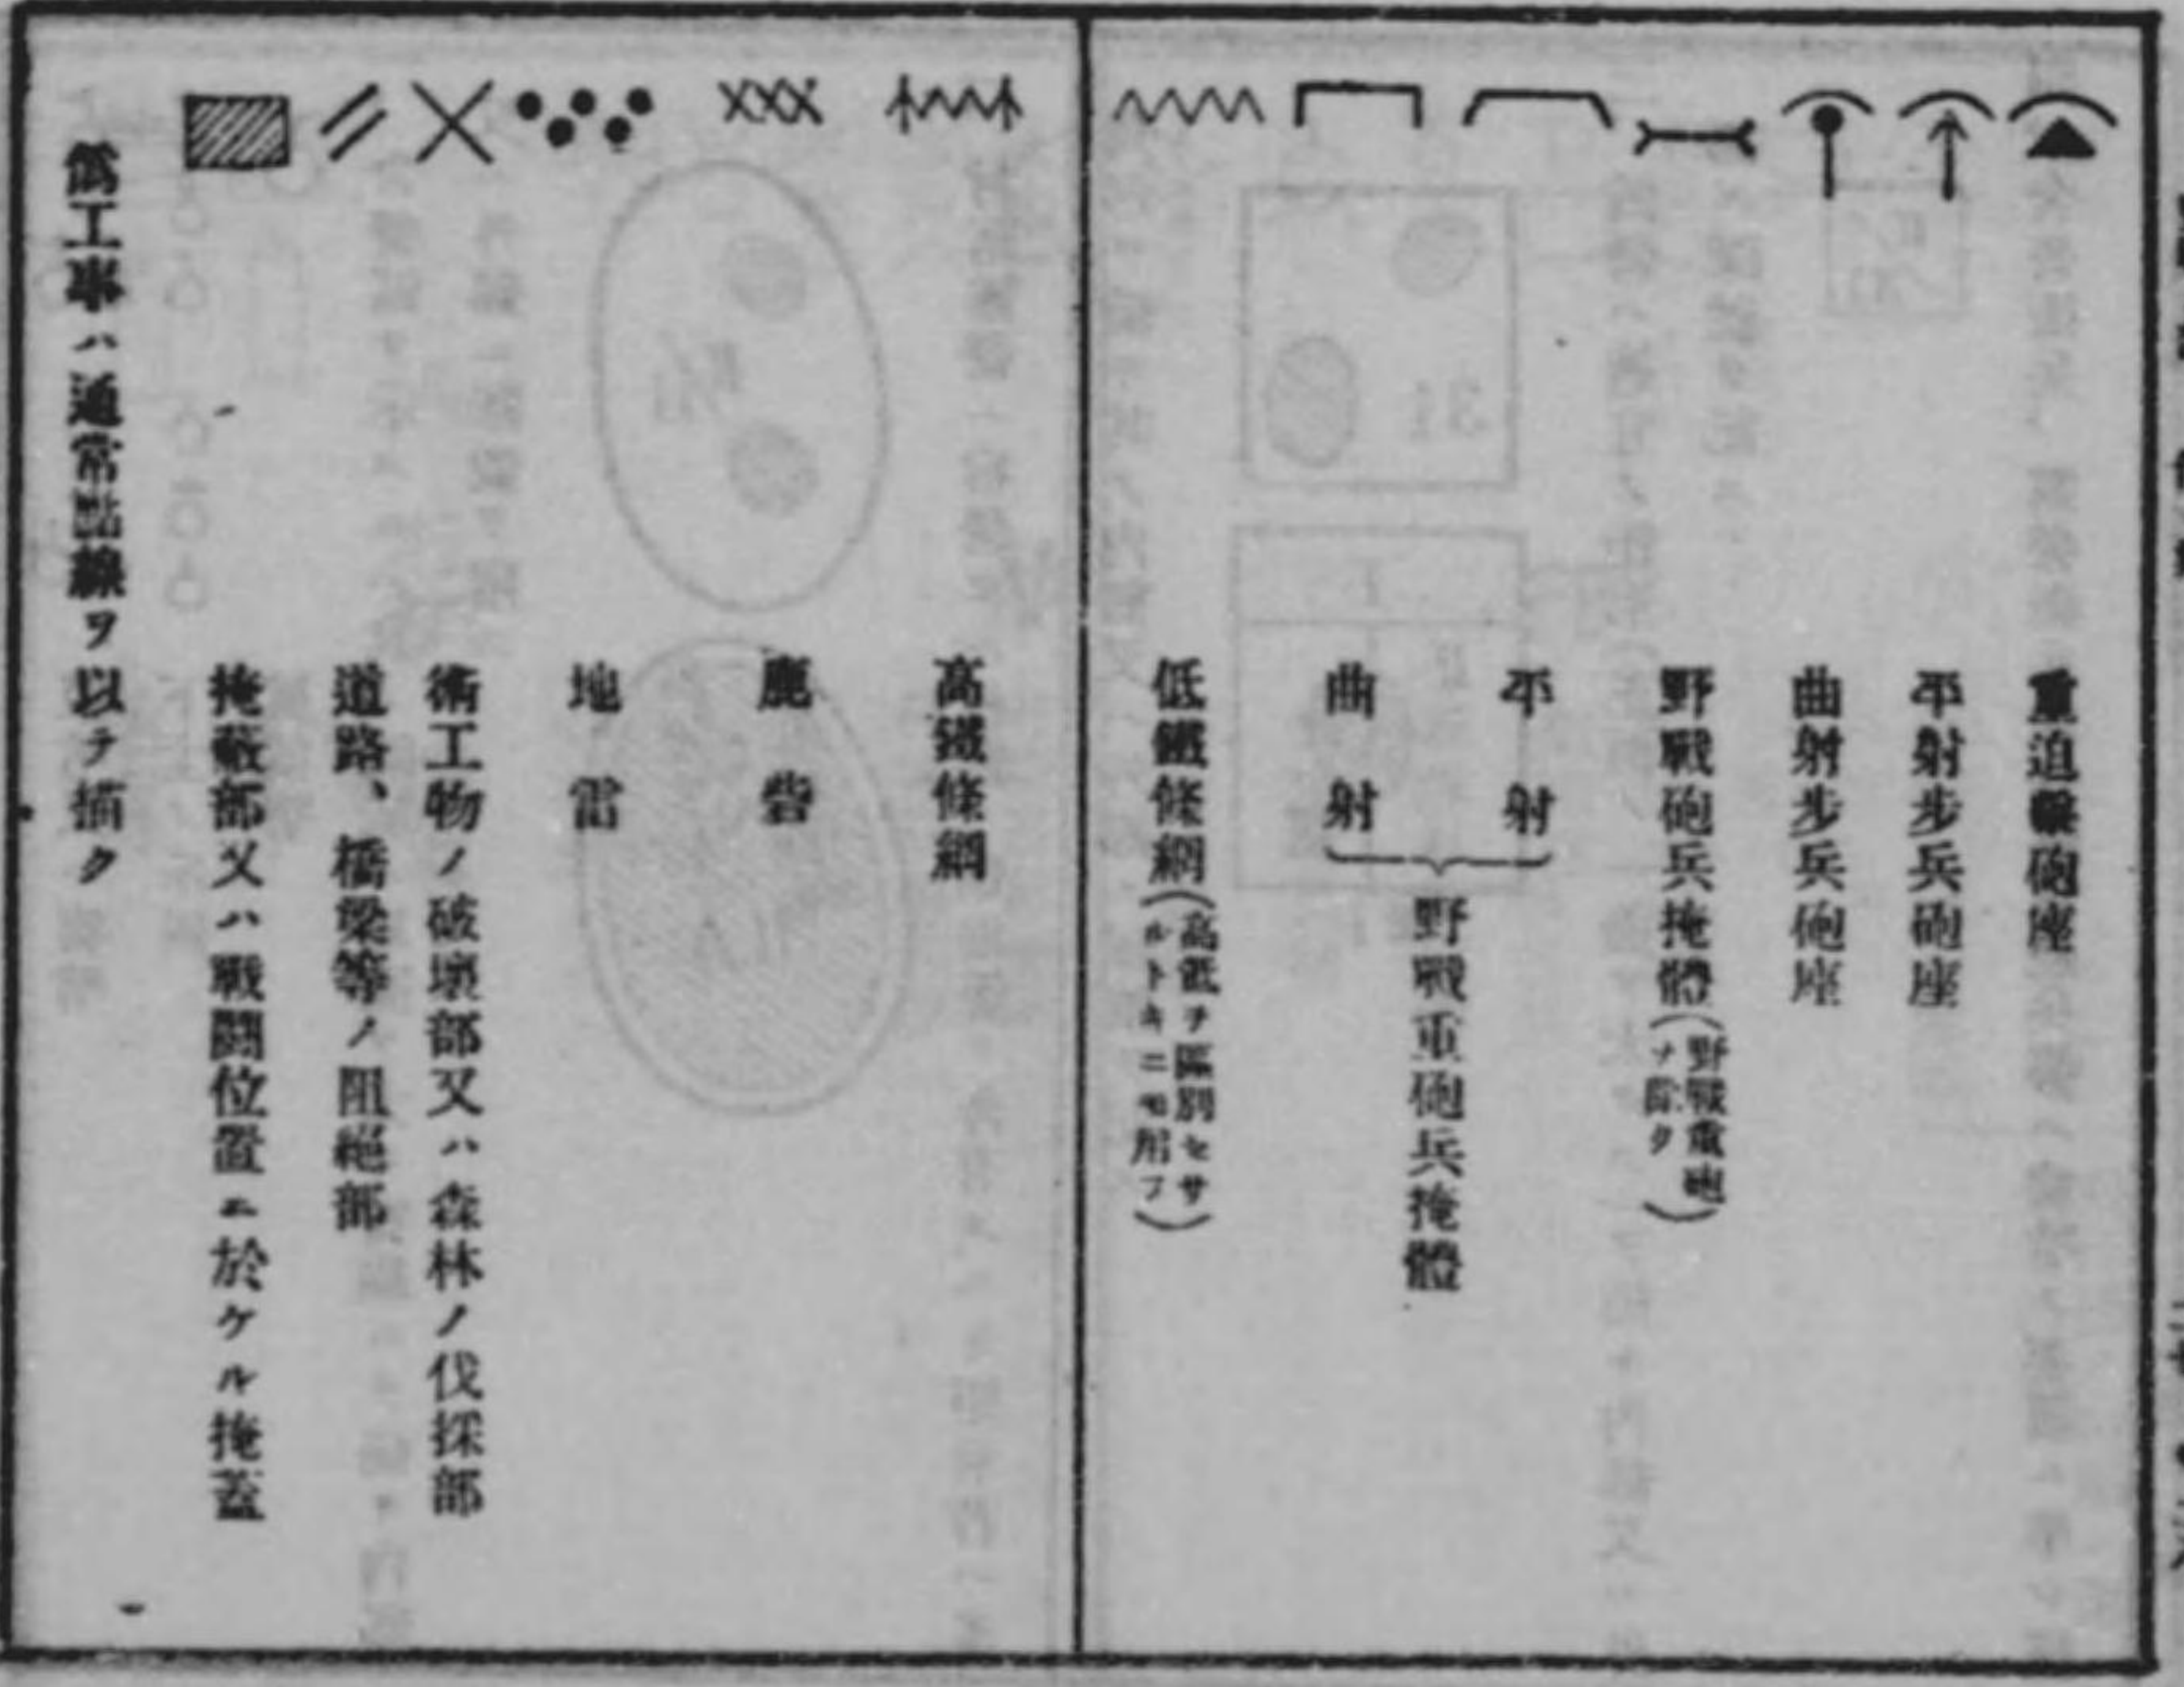 重迫擊砲座
平射步兵砲座
曲射步兵砲座
野戰砲兵掩體(野戰重砲ヲ除ク)
平射
曲射
野戰重砲兵掩體
低鐵條網(高低ヲ區別セサルトキニモ用フ)
高鐵條網
鹿砦
地雷
術工物ノ破壞部又ハ森林ノ伐採部
道路、橋梁等ノ阻絕部
掩蔽部又ハ戰鬪位置ニ於ケル掩蓋
僞工事ハ通常點線ヲ以テ描ク